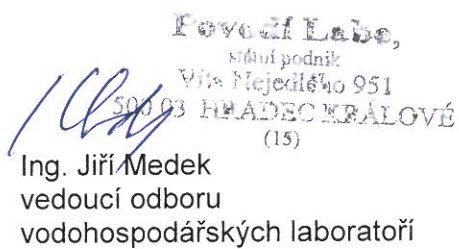 Povodí Labe,
státní podnik
Víta Nejedlého 951
500 03 HRADEC KRÁLOVÉ
(15)
Ing. Jiří Medek
vedoucí odboru
vodohospodářských laboratoří